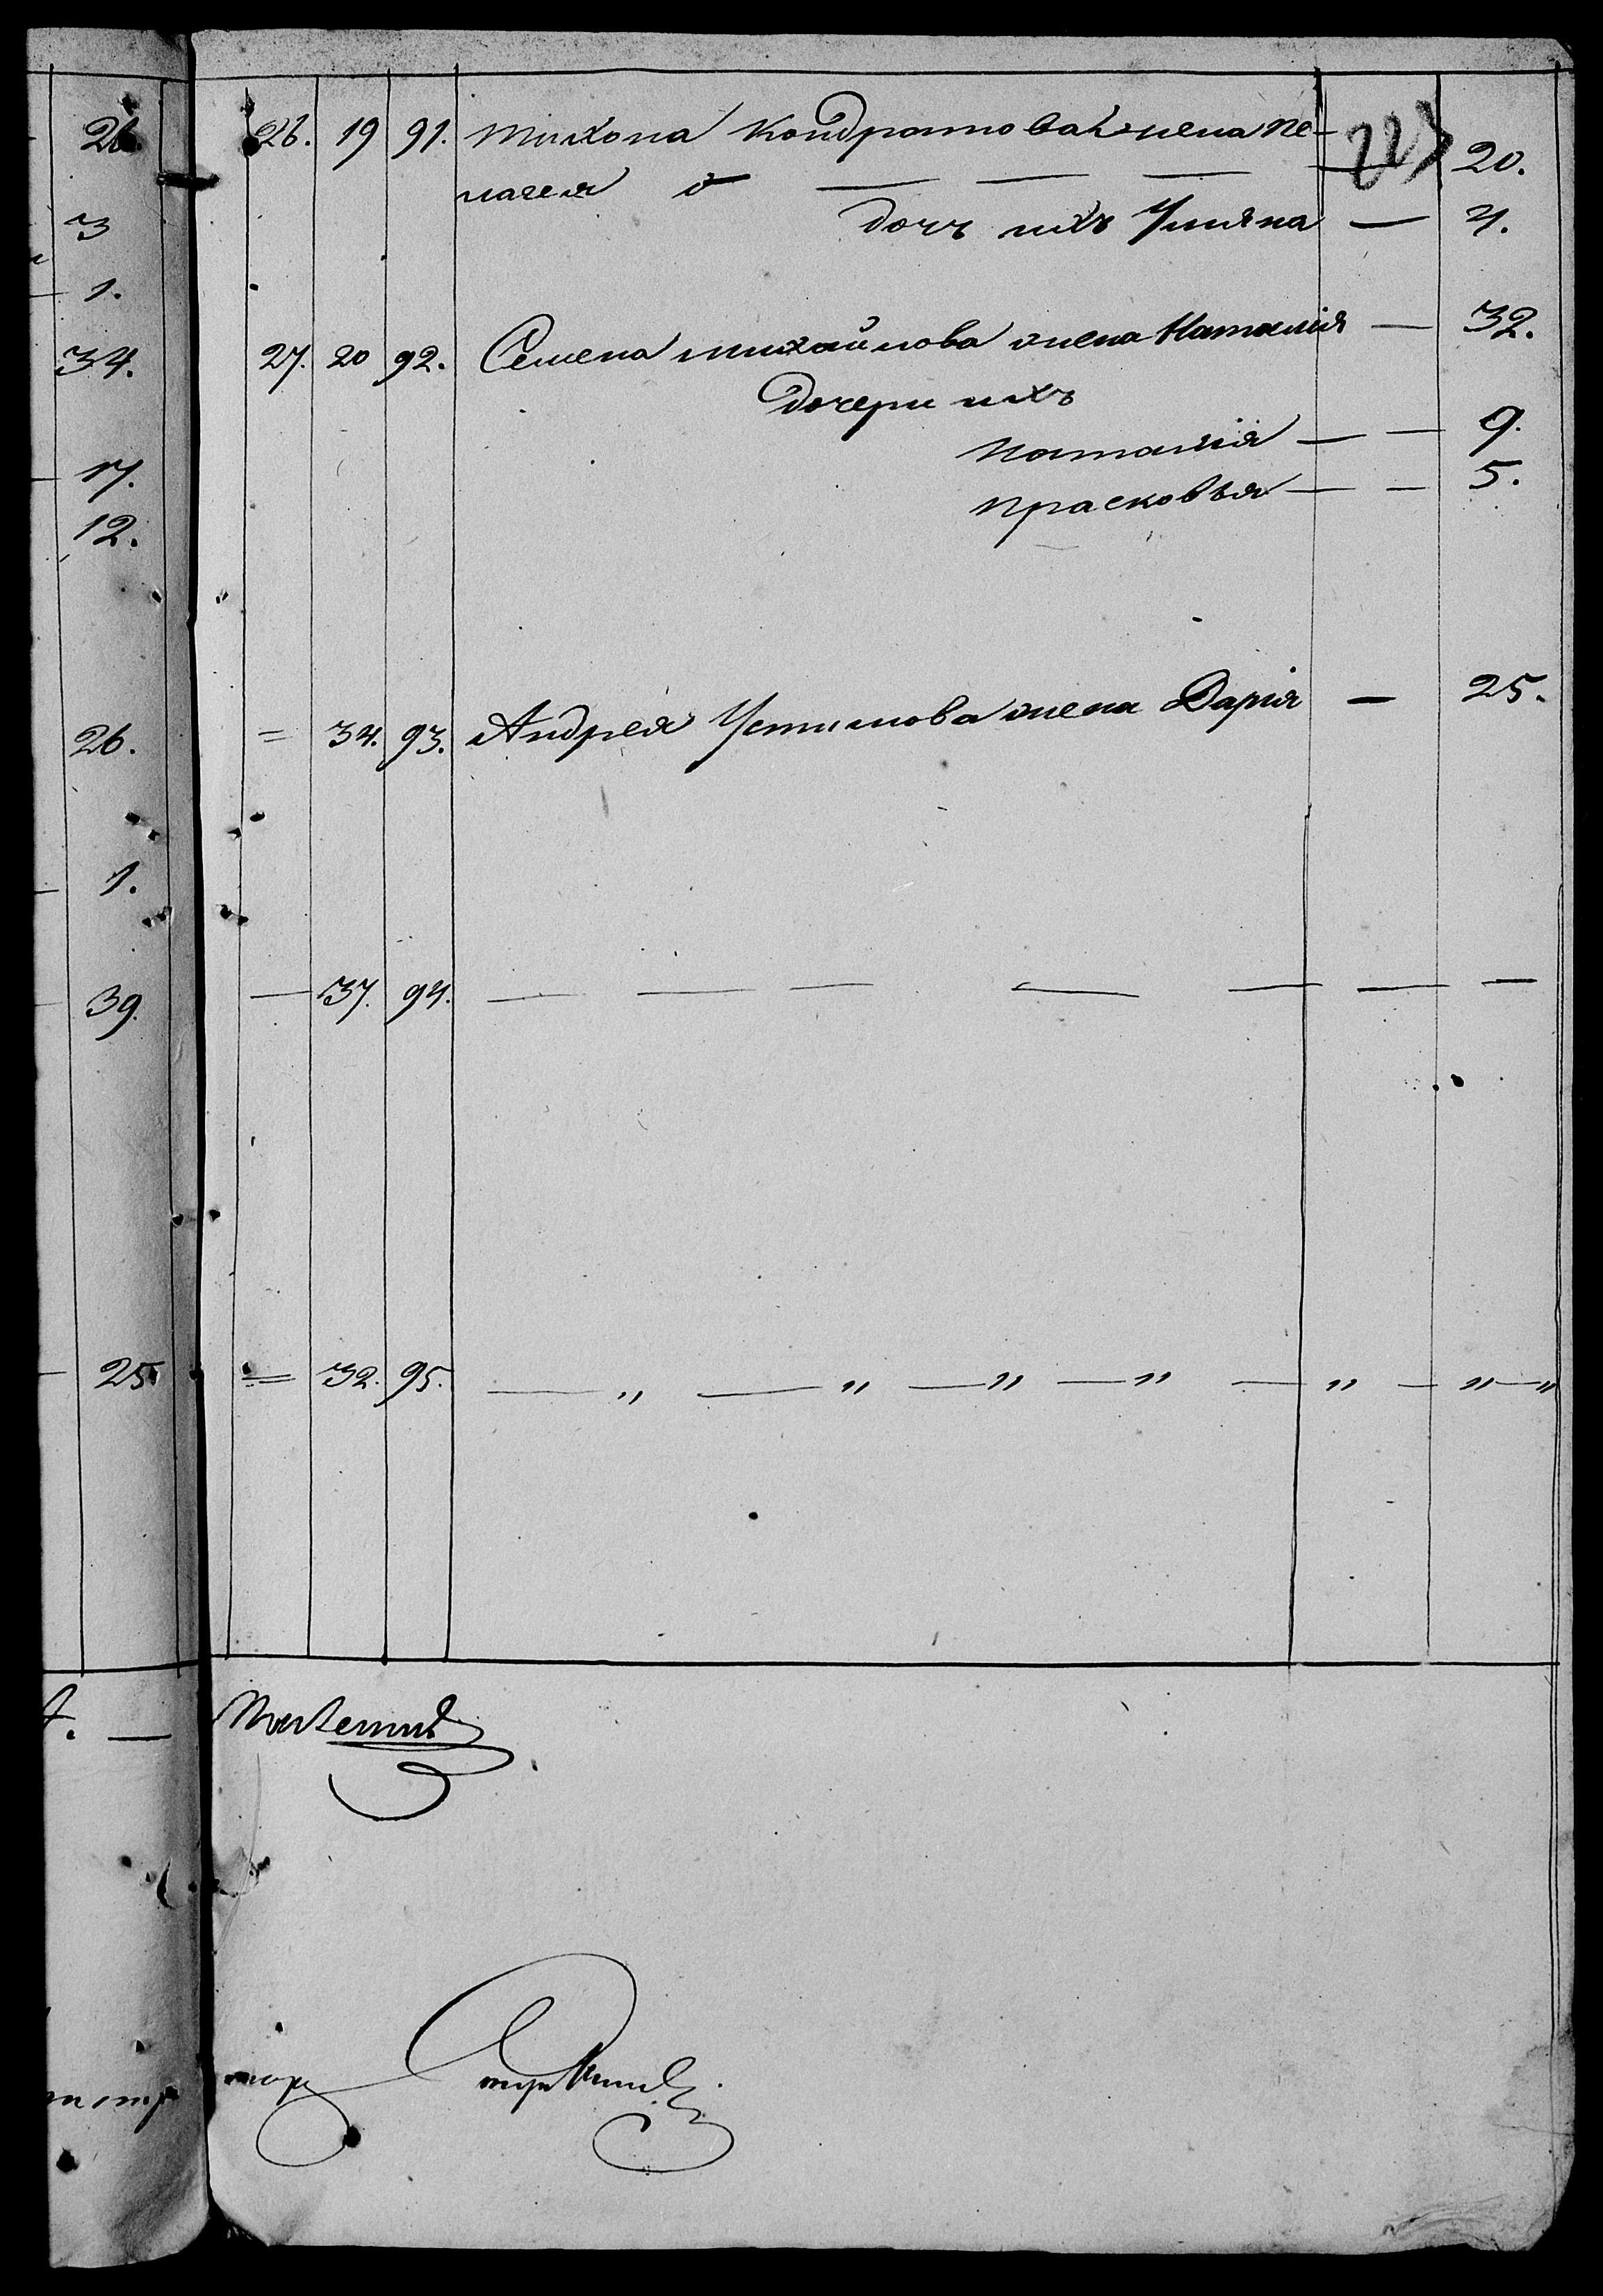 26.
3
1.
34.
17.
12.
26.
1.
39.
25
26. 19 91. Тихона Кондратова жена Пе-
лагея — — — — 20.
дочь ихъ Ульяна — 4.
27. 20 92. Семена Михайлова жена Наталія — 32.
дочери ихъ
Наталія — — 9.
Прасковья — — 5.
= 34. 93. Андрея Устинова жена Дарія — 25.
— 37. 94. — — — — — — —
= 32. 95. — „ — „ — „ — „ — „ — „ — „